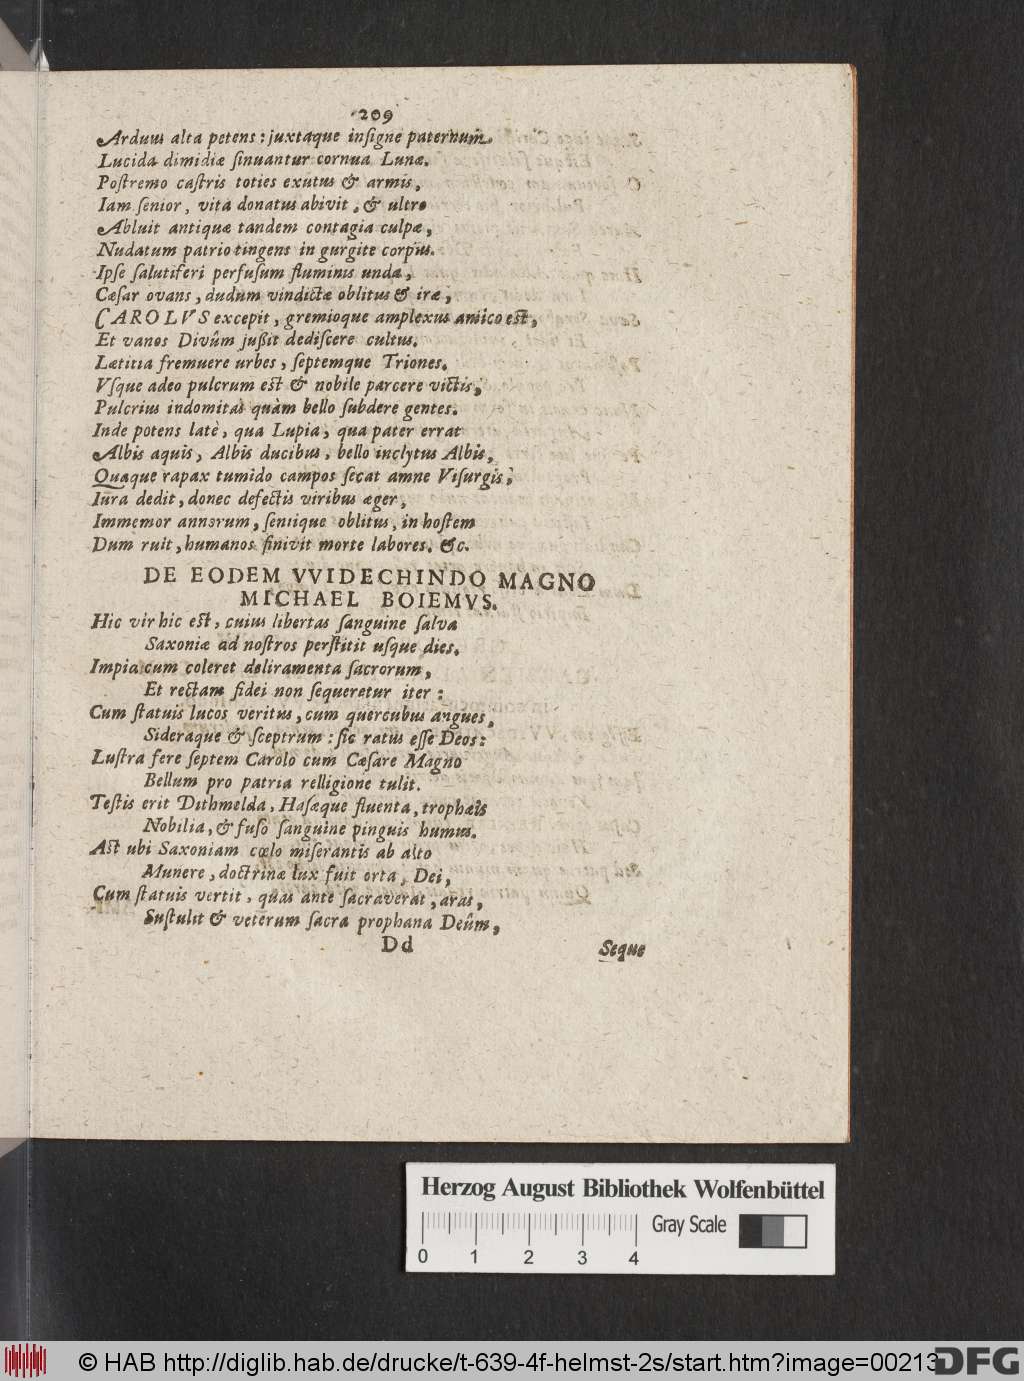 209
Arduus alta petens: juxtaque inſigne paternum.
Lucida dimidiæ ſinuantur cornua Lunæ.
Poſtremo caſtris toties exutus & armis,
Iam ſenior, vita donatus abivit, & ultro
Abluit antiquæ tandem contagia culpæ,
Nudatum patrio tingens in gurgite corpus.
Ipſe ſalutiferi perfuſum fluminis unda,
Cæſar ovans, dudum vindictæ oblitus & iræ,
CAROLVS excepit, gremioque amplexus amico eſt,
Et vanos Divûm juſſit dediſcere cultus.
Lætitia fremuere urbes, ſeptemque Triones.
Vſque adeo pulcrum eſt & nobile parcere victis,
Pulcrius indomitas quàm bello ſubdere gentes.
Inde potens latè, qua Lupia, qua pater errat
Albis aquis, Albis ducibus, bello inclytus Albis,
Quaque rapax tumido campos ſecat amne Viſurgis,
Iura dedit, donec defectis viribus æger,
Immemor annorum, ſeniique oblitus, in hoſtem
Dum ruit, humanos finivit morte labores. &c.
DE EODEM VVIDECHINDO MAGNO
MICHAEL BOIEMVS.
Hic vir hic eſt, cuius libertas ſanguine ſalva
Saxoniæ ad noſtros perſtitit uſque dies.
Impia cum coleret deliramenta ſacrorum,
Et rectam fidei non ſequeretur iter:
Cum ſtatuis lucos veritus, cum quercubus angues,
Sideraque & ſceptrum: ſic ratus eſſe Deos:
Luſtra fere ſeptem Carolo cum Cæſare Magno
Bellum pro patria relligione tulit.
Teſtis erit Dithmelda, Haſæque fluenta, trophæis
Nobilia, & fuſo ſanguine pinguis humus.
Aſt ubi Saxoniam cœlo miſerantis ab alto
Munere, doctrinæ lux fuit orta, Dei,
Cum ſtatuis vertit, quas ante ſacraverat, aras,
Suſtulit & veterum ſacra prophana Deûm,
Dd
Seque
Herzog August Bibliothek Wolfenbüttel
Gray Scale
0 1 2 3 4
© HAB http://diglib.hab.de/drucke/t-639-4f-helmst-2s/start.htm?image=00213
DFG